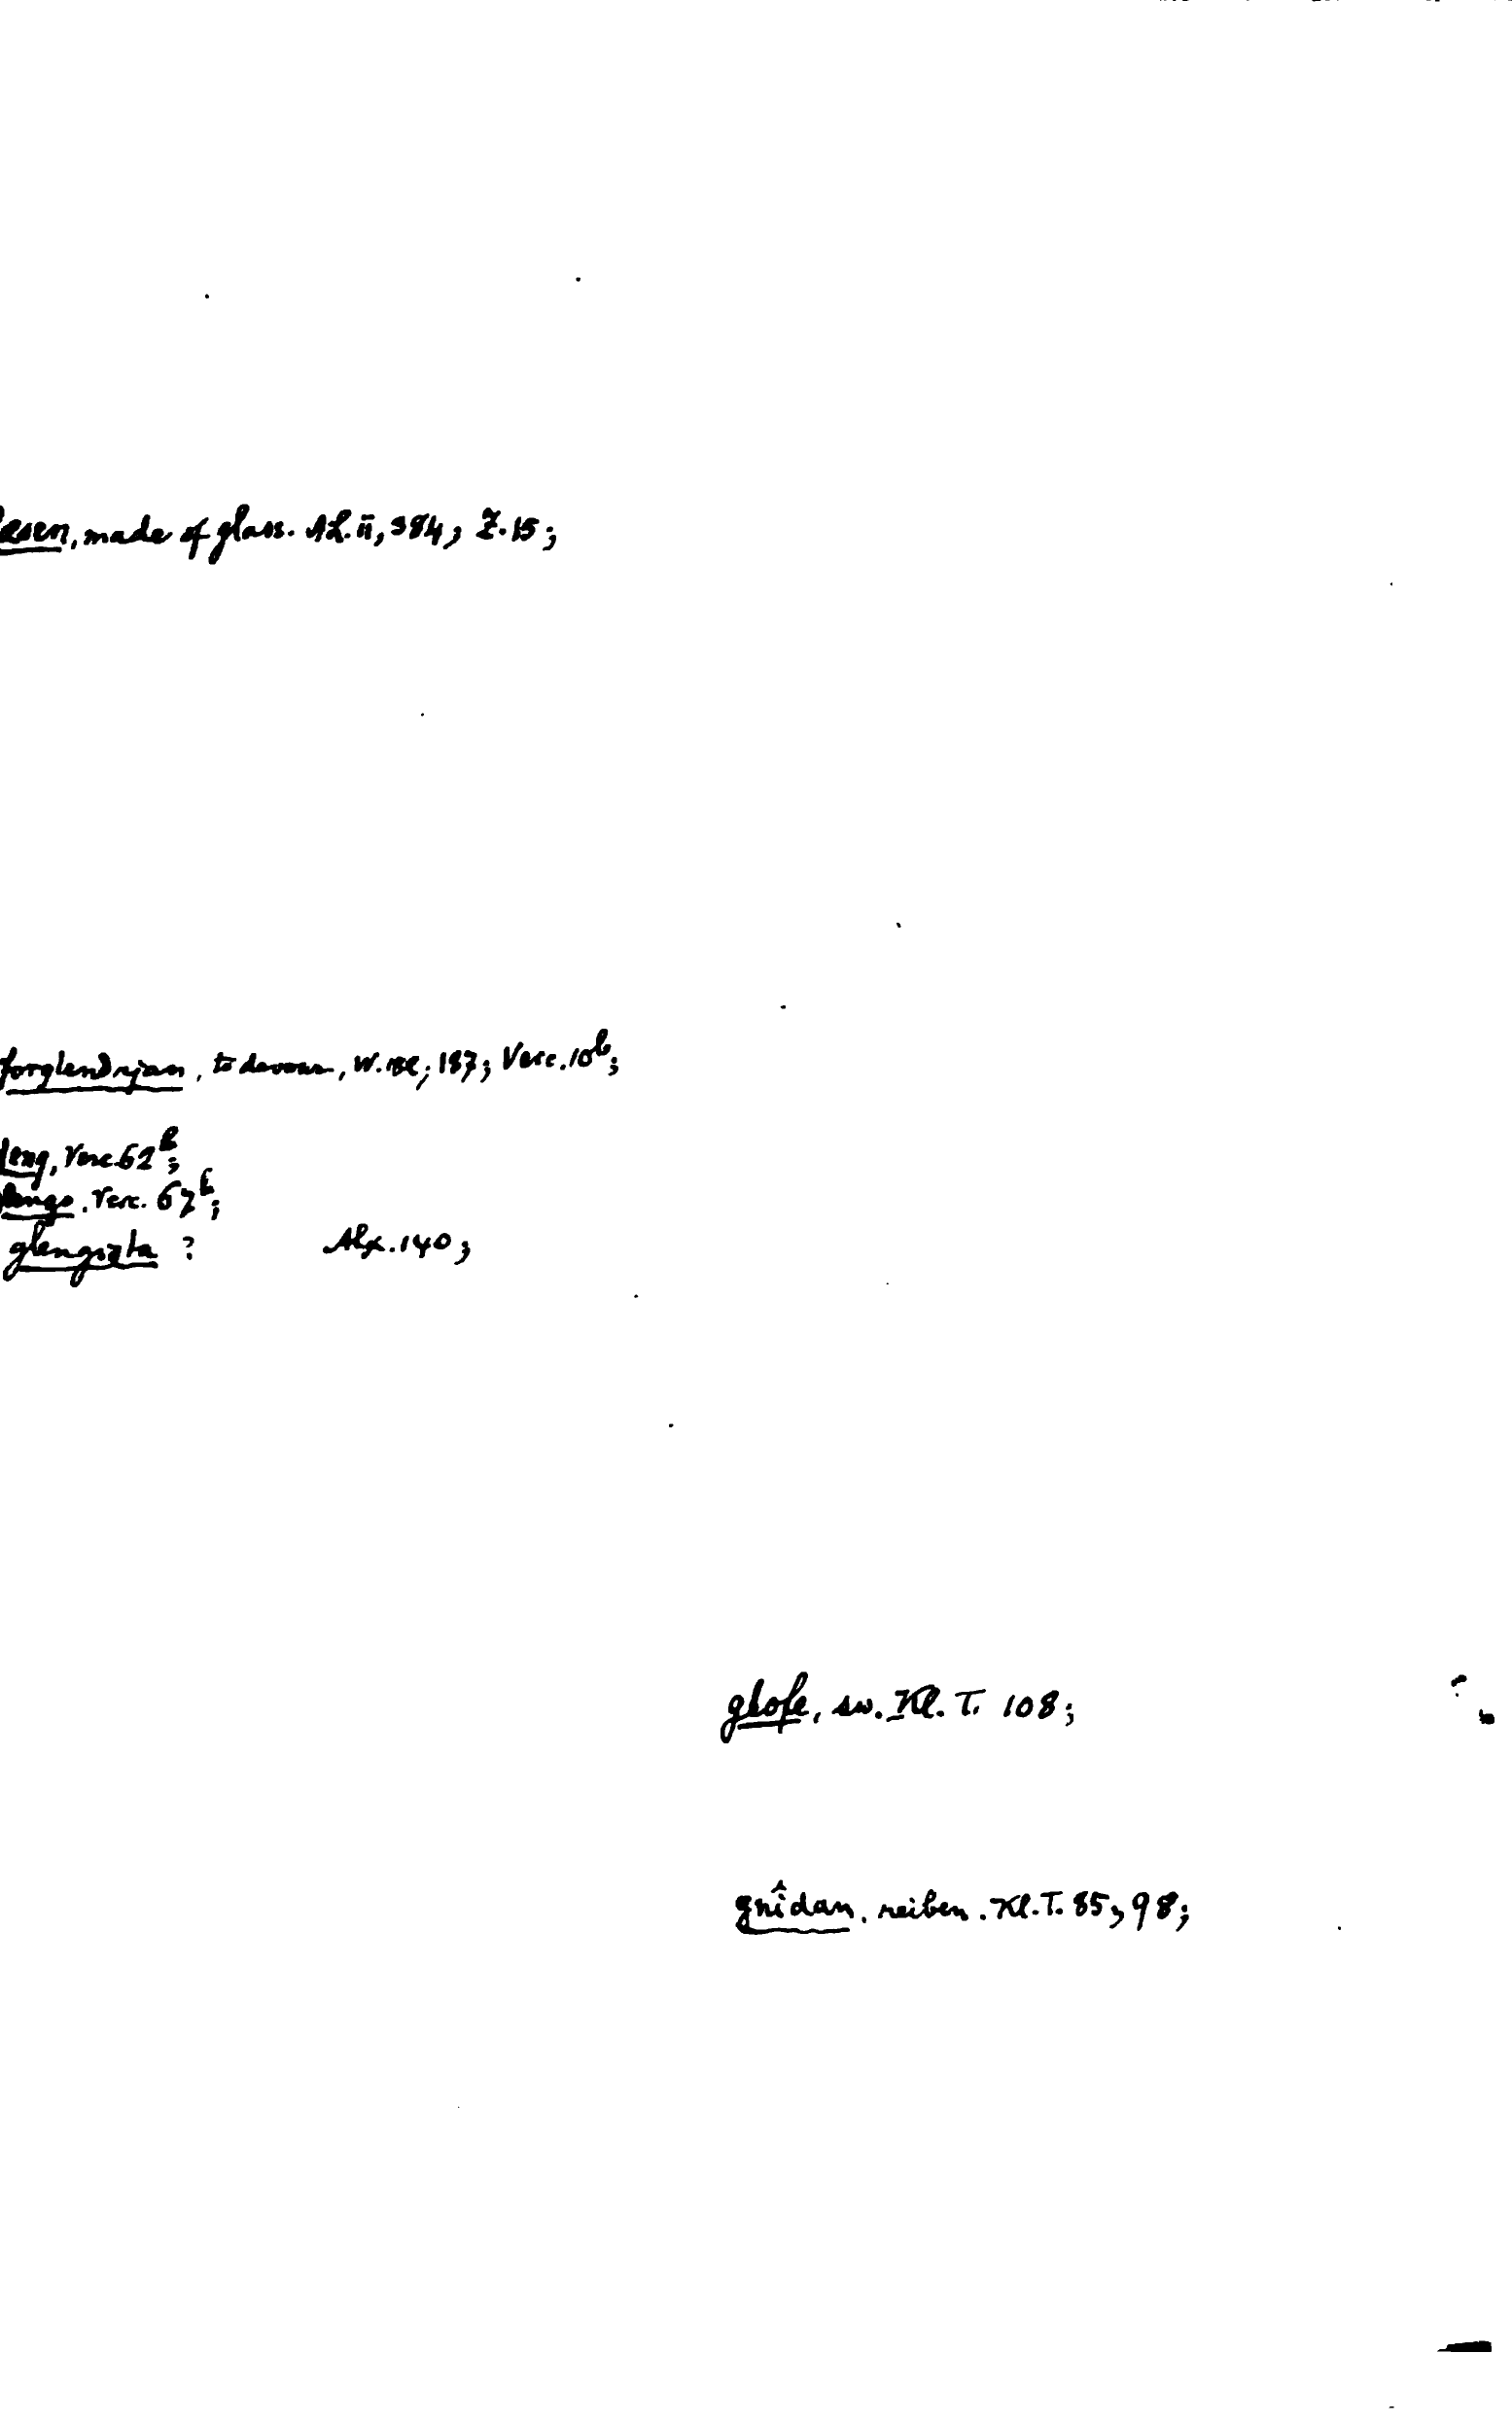 æsen, made of glass. AL. ii, 384; Z. 15;
forglendrjan, to devour, W. 187; Verc. 10b;
leng, Verc. 62b;
Verc. 67b;
glengista ? Alx. 140;
glofe, sw. Kl. T. 108;
gnîdan, reiben. Kl. T. 85, 98;